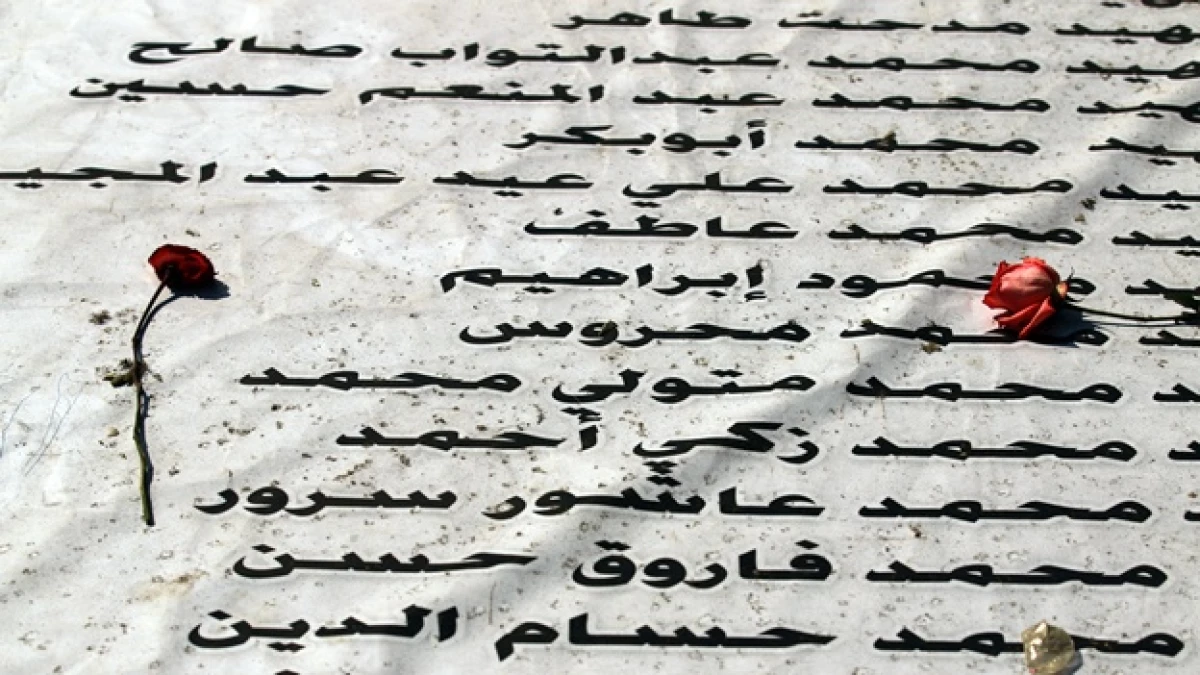 هيد مدحت طاهر
هيد محمد عبدالتواب صالح
يد محمد عبد المنعم حسين
يد محمد أبوبكر
يد محمد علي عيد عبد المجيـ
يد محمد عاطف
د محمود إبراهيم
د محمد محروس
د محمد متولي محمد
د محمد زكي أحمد
محمد عاشور سرور
محمد فاروق حسن
محمد حسام الدين